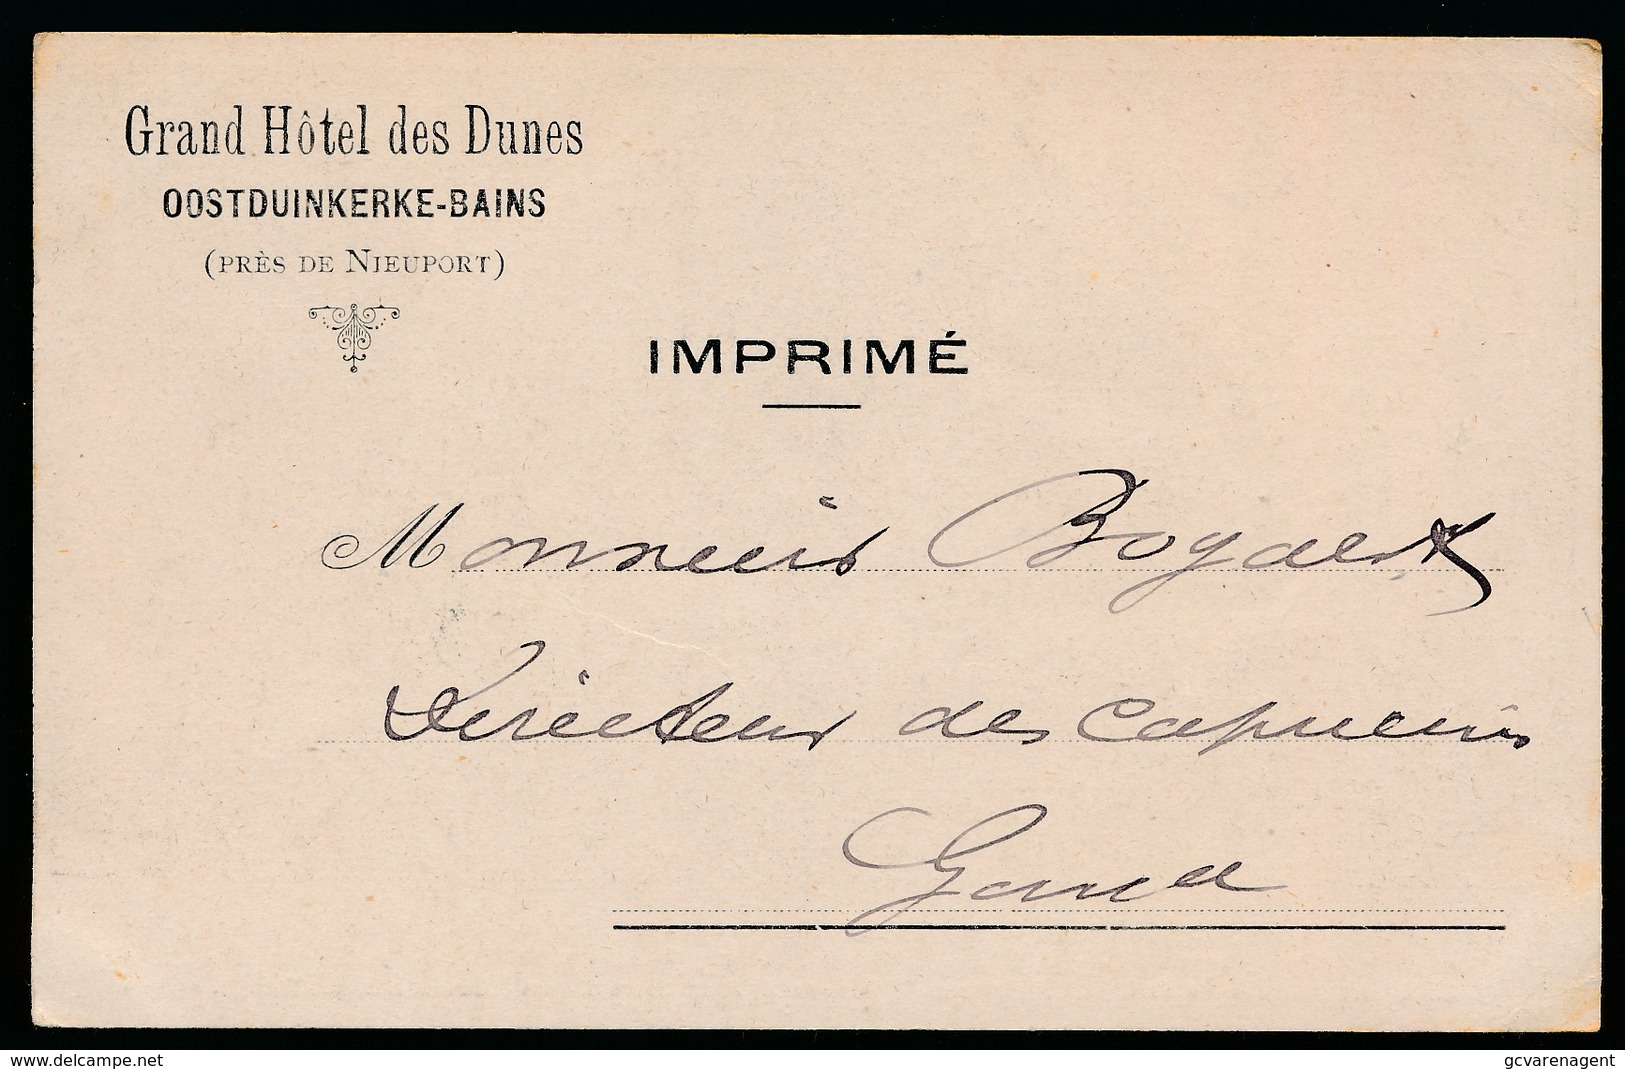 Grand Hôtel des Dunes
OOSTDUINKERKE-BAINS
(PRÈS DE NIEUPORT)
IMPRIMÉ
Monsieur Bogaert
Directeur des Capucins
Gand
delcampe.net
gcvarenagent